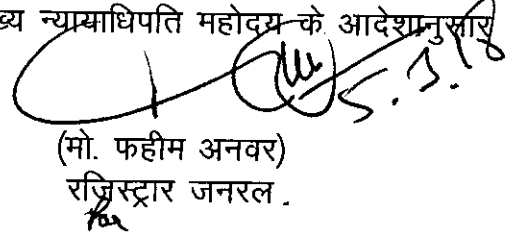 ख्य न्यायाधिपति महोदय के आदेशानुसार
5.3.18
(मो. फहीम अनवर)
रजिस्ट्रार जनरल.